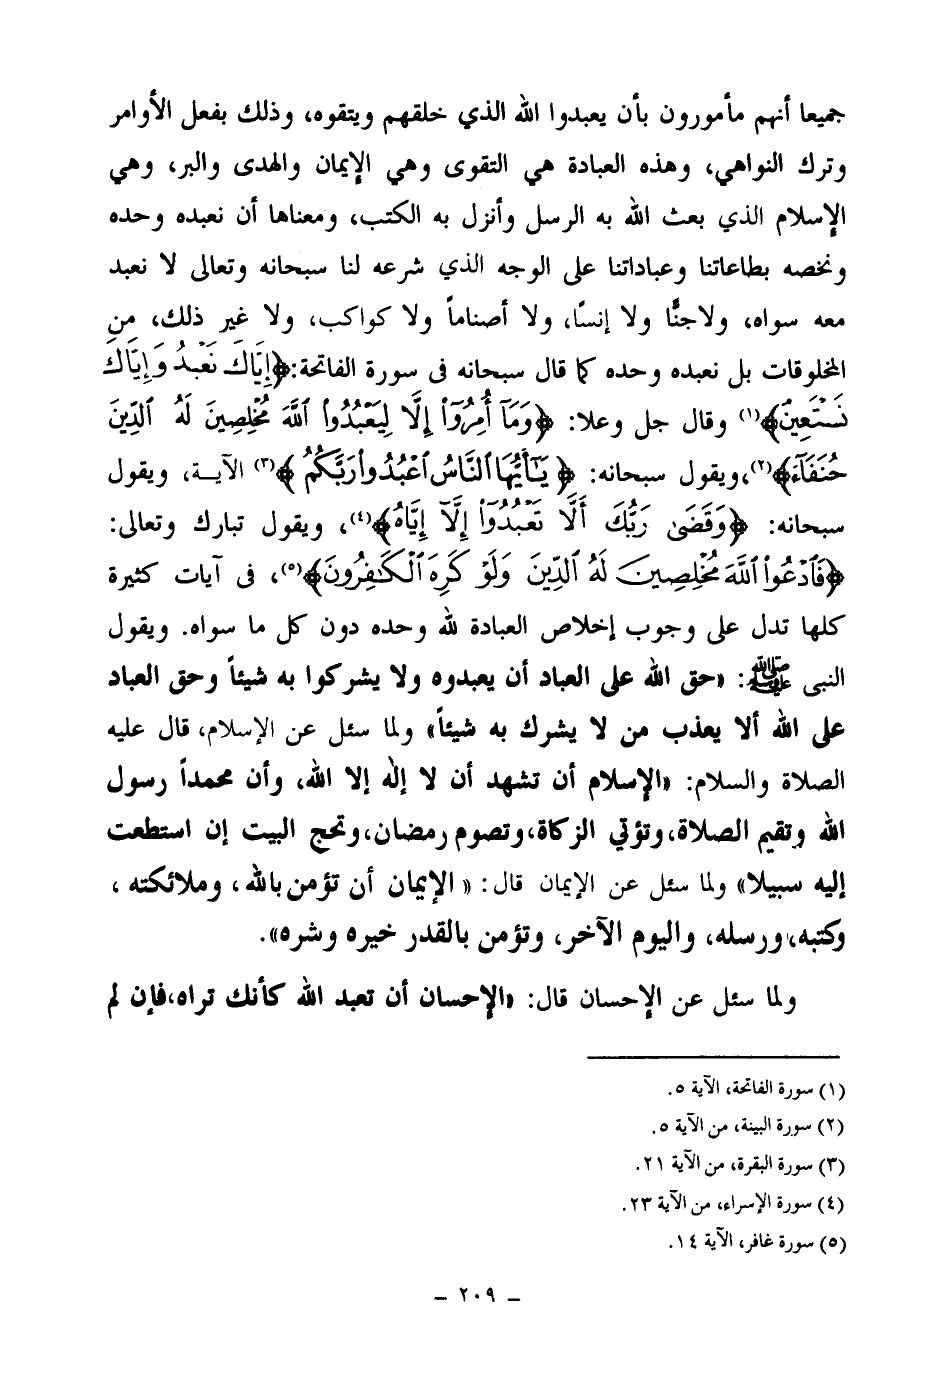 جميعا أنهم مأمورون بأن يعبدوا الله الذي خلقهم ويتقوه، وذلك بفعل الأوامر
وترك النواهي، وهذه العبادة هي التقوى وهي الإيمان والهدى والبر، وهي
الإسلام الذي بعث الله به الرسل وأنزل به الكتب، ومعناها أن نعبده وحده
ونخصه بطاعاتنا وعباداتنا على الوجه الذي شرعه لنا سبحانه وتعالى لا نعبد
معه سواه، ولاجنًّا ولا إنسًا، ولا أصناماً ولا كواكب، ولا غير ذلك، من
المخلوقات بل نعبده وحده كما قال سبحانه فى سورة الفاتحة: ﴿إِيَّاكَ نَعْبُدُ وَإِيَّاكَ
نَسْتَعِينُ﴾(١) وقال جل وعلا: ﴿وَمَآ أُمِرُوٓا۟ إِلَّا لِيَعْبُدُوا۟ ٱللَّهَ مُخْلِصِينَ لَهُ ٱلدِّينَ
حُنَفَآءَ﴾(٢)، ويقول سبحانه: ﴿يَـٰٓأَيُّهَا ٱلنَّاسُ ٱعْبُدُوا۟ رَبَّكُمُ﴾(٣) الآيـة، ويقول
سبحانه: ﴿وَقَضَىٰ رَبُّكَ أَلَّا تَعْبُدُوٓا۟ إِلَّآ إِيَّاهُ﴾(٤)، ويقول تبارك وتعالى:
﴿فَٱدْعُوا۟ ٱللَّهَ مُخْلِصِينَ لَهُ ٱلدِّينَ وَلَوْ كَرِهَ ٱلْكَـٰفِرُونَ﴾(٥)، فى آيات كثيرة
كلها تدل على وجوب إخلاص العبادة لله وحده دون كل ما سواه. ويقول
النبى ﷺ: «حق الله على العباد أن يعبدوه ولا يشركوا به شيئاً وحق العباد
على الله ألا يعذب من لا يشرك به شيئاً» ولما سئل عن الإسلام، قال عليه
الصلاة والسلام: «الإسلام أن تشهد أن لا إله إلا الله، وأن محمداً رسول
الله وتقيم الصلاة، وتؤتي الزكاة، وتصوم رمضان، وتحج البيت إن استطعت
إليه سبيلا» ولما سئل عن الإيمان قال: «الإيمان أن تؤمن بالله، وملائكته،
وكتبه، ورسله، واليوم الآخر، وتؤمن بالقدر خيره وشره».
ولما سئل عن الإحسان قال: «الإحسان أن تعبد الله كأنك تراه، فإن لم
(١) سورة الفاتحة، الآية ٥.
(٢) سورة البينة، من الآية ٥.
(٣) سورة البقرة، من الآية ٢١.
(٤) سورة الإسراء، من الآية ٢٣.
(٥) سورة غافر، الآية ١٤.
- ٢٠٩ -